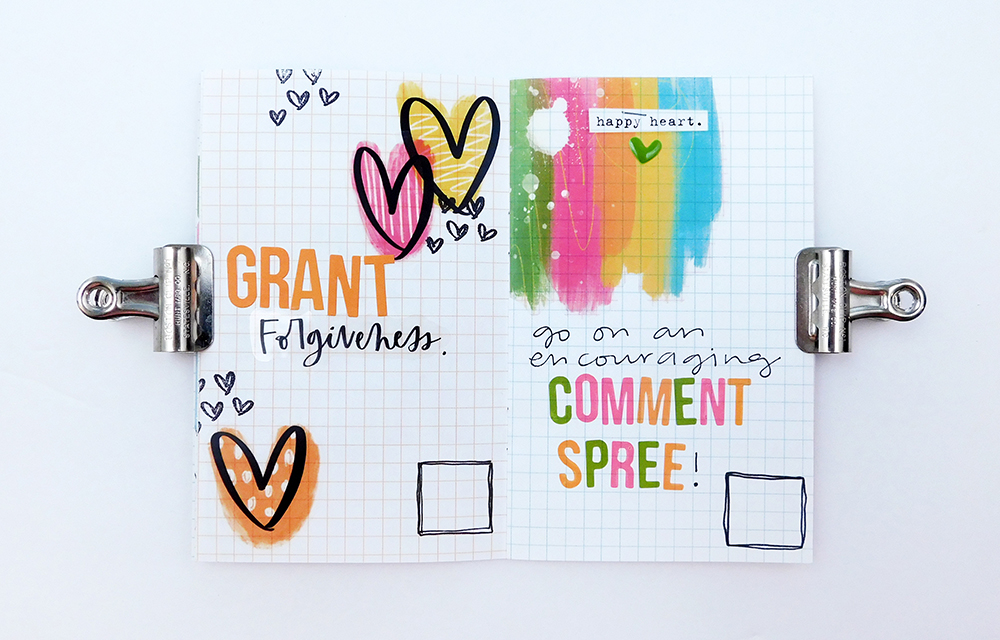 GRANT
Forgiveness.
happy heart.
go on an
encouraging
COMMENT
SPREE!